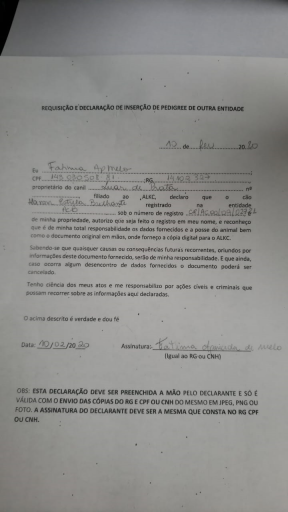 REQUISIÇÃO E DECLARAÇÃO DE INSERÇÃO DE PEDIGREE DE OUTRA ENTIDADE
10 de fev 2020
Eu Fatima Ap Melo
CPF RG
proprietária do canil Luar de Prata nº
filiado ao ,ALKC, declaro que o cão
registrado na entidade
sob o número de registro
de minha propriedade, autorizo que seja feito o registro em meu nome, e reconheço
que é de minha total responsabilidade os dados fornecidos e a posse do animal bem
como o documento original em mãos, onde forneço a cópia digital para o ALKC.
Sabendo-se que quaisquer causas ou consequências futuras recorrentes, oriundos por
informações deste documento fornecido, serão de minha responsabilidade. E que ainda,
caso ocorra algum desencontro de dados fornecidos o documento poderá ser
cancelado.
Tenho ciência dos meus atos e me responsabilizo por ações cíveis e criminais que
possam recorrer sobre as informações aqui declaradas.
O acima descrito é verdade e dou fé
Data: 10/02/2020 Assinatura: Fatima Aparecida de Melo
(Igual ao RG ou CNH)
OBS: ESTA DECLARAÇÃO DEVE SER PREENCHIDA A MÃO PELO DECLARANTE E SÓ É
VÁLIDA COM O ENVIO DAS CÓPIAS DO RG E CPF OU CNH DO MESMO EM JPEG, PNG OU
FOTO. A ASSINATURA DO DECLARANTE DEVE SER A MESMA QUE CONSTA NO RG CPF
OU CNH.